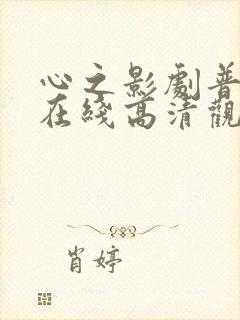 心之影劇普
在綫高清觀
肖婷